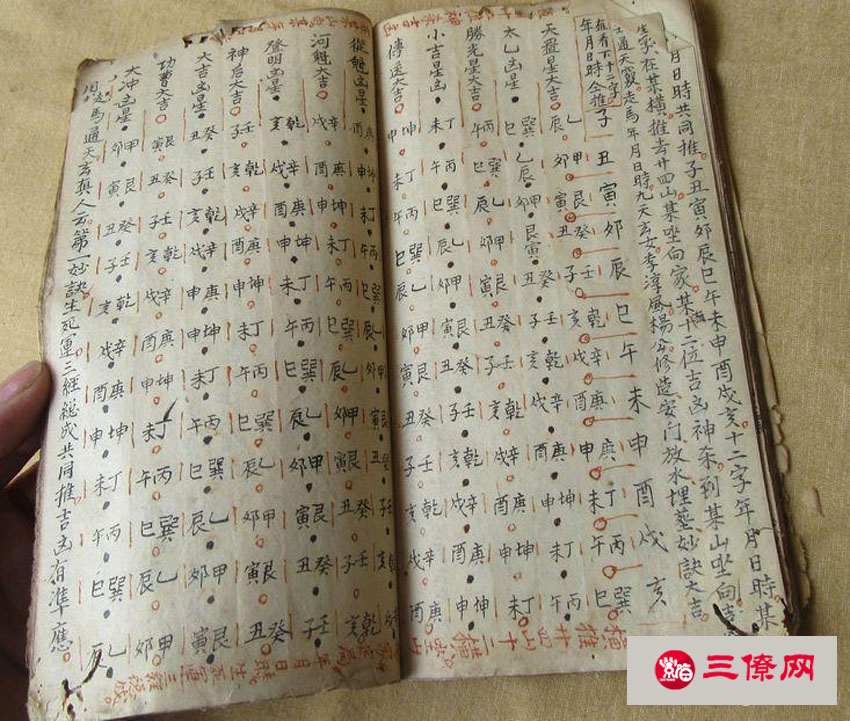 月日時共同推子丑寅卯辰巳午未申酉戌亥十二字年月日時某
字在某横推去廿四山某坐向家某十二位吉凶神来到某山坐向吉
通天竅走馬年月日時九天玄女李淳風楊公修造安门放水埋塟妙訣大吉
但看下十二字
年月日時全推
子丑寅卯辰巳午未申酉戌亥
天罡星大吉 乙辰 甲卯 艮寅 癸丑 壬子 乾亥 辛戌 庚酉 庚申 丁未 丙午 巽巳
太乙凶星 巳 乙辰 甲 艮寅 癸丑 壬子 乾亥 辛戌 庚酉 坤申 丁未 丙午
勝光星大吉 丙午 巽巳 乙辰 甲卯 艮寅 癸丑 壬子 乾亥 辛戌 庚酉 坤申 丁未
小吉星凶 丁未 丙午 巽巳 乙辰 甲卯 艮寅 癸丑 壬子 乾亥 辛戌 庚酉 坤申
傳送大吉 坤申 丁未 丙午 巽巳 乙辰 甲卯 艮寅 癸丑 壬子 乾亥 辛戌 庚酉
從魁凶星 庚酉 坤申 丁未 丙午 巽巳 乙辰 甲卯 艮寅 癸丑 壬子 亥 戌
河魁大吉 辛戌 庚酉 坤申 丁未 丙午 巽巳 乙辰 甲卯 艮寅 癸丑 壬子 乾亥
登明凶星 乾亥 辛戌 庚酉 坤申 丁未 丙午 巽巳 乙辰 甲卯 艮寅 癸丑 壬子
神后大吉 壬子 乾亥 辛戌 庚酉 坤申 丁未 丙午 巽巳 乙辰 甲卯 艮寅 癸丑
大吉凶星 癸丑 壬子 乾亥 辛戌 庚申 坤申 丁未 丙午 巽巳 乙辰 甲卯 艮寅
功曹大吉 艮寅 癸丑 壬子 乾亥 辛戌 庚酉 坤申 丁未 丙午 巽巳 乙辰 甲卯
大冲凶星 甲卯 艮寅 癸丑 壬子 乾亥 辛戌 庚酉 坤申 丁未 丙午 巽巳 乙辰
用走馬通天玄真人云第一妙訣生死運三經總成共同推吉凶有準應
三僚网